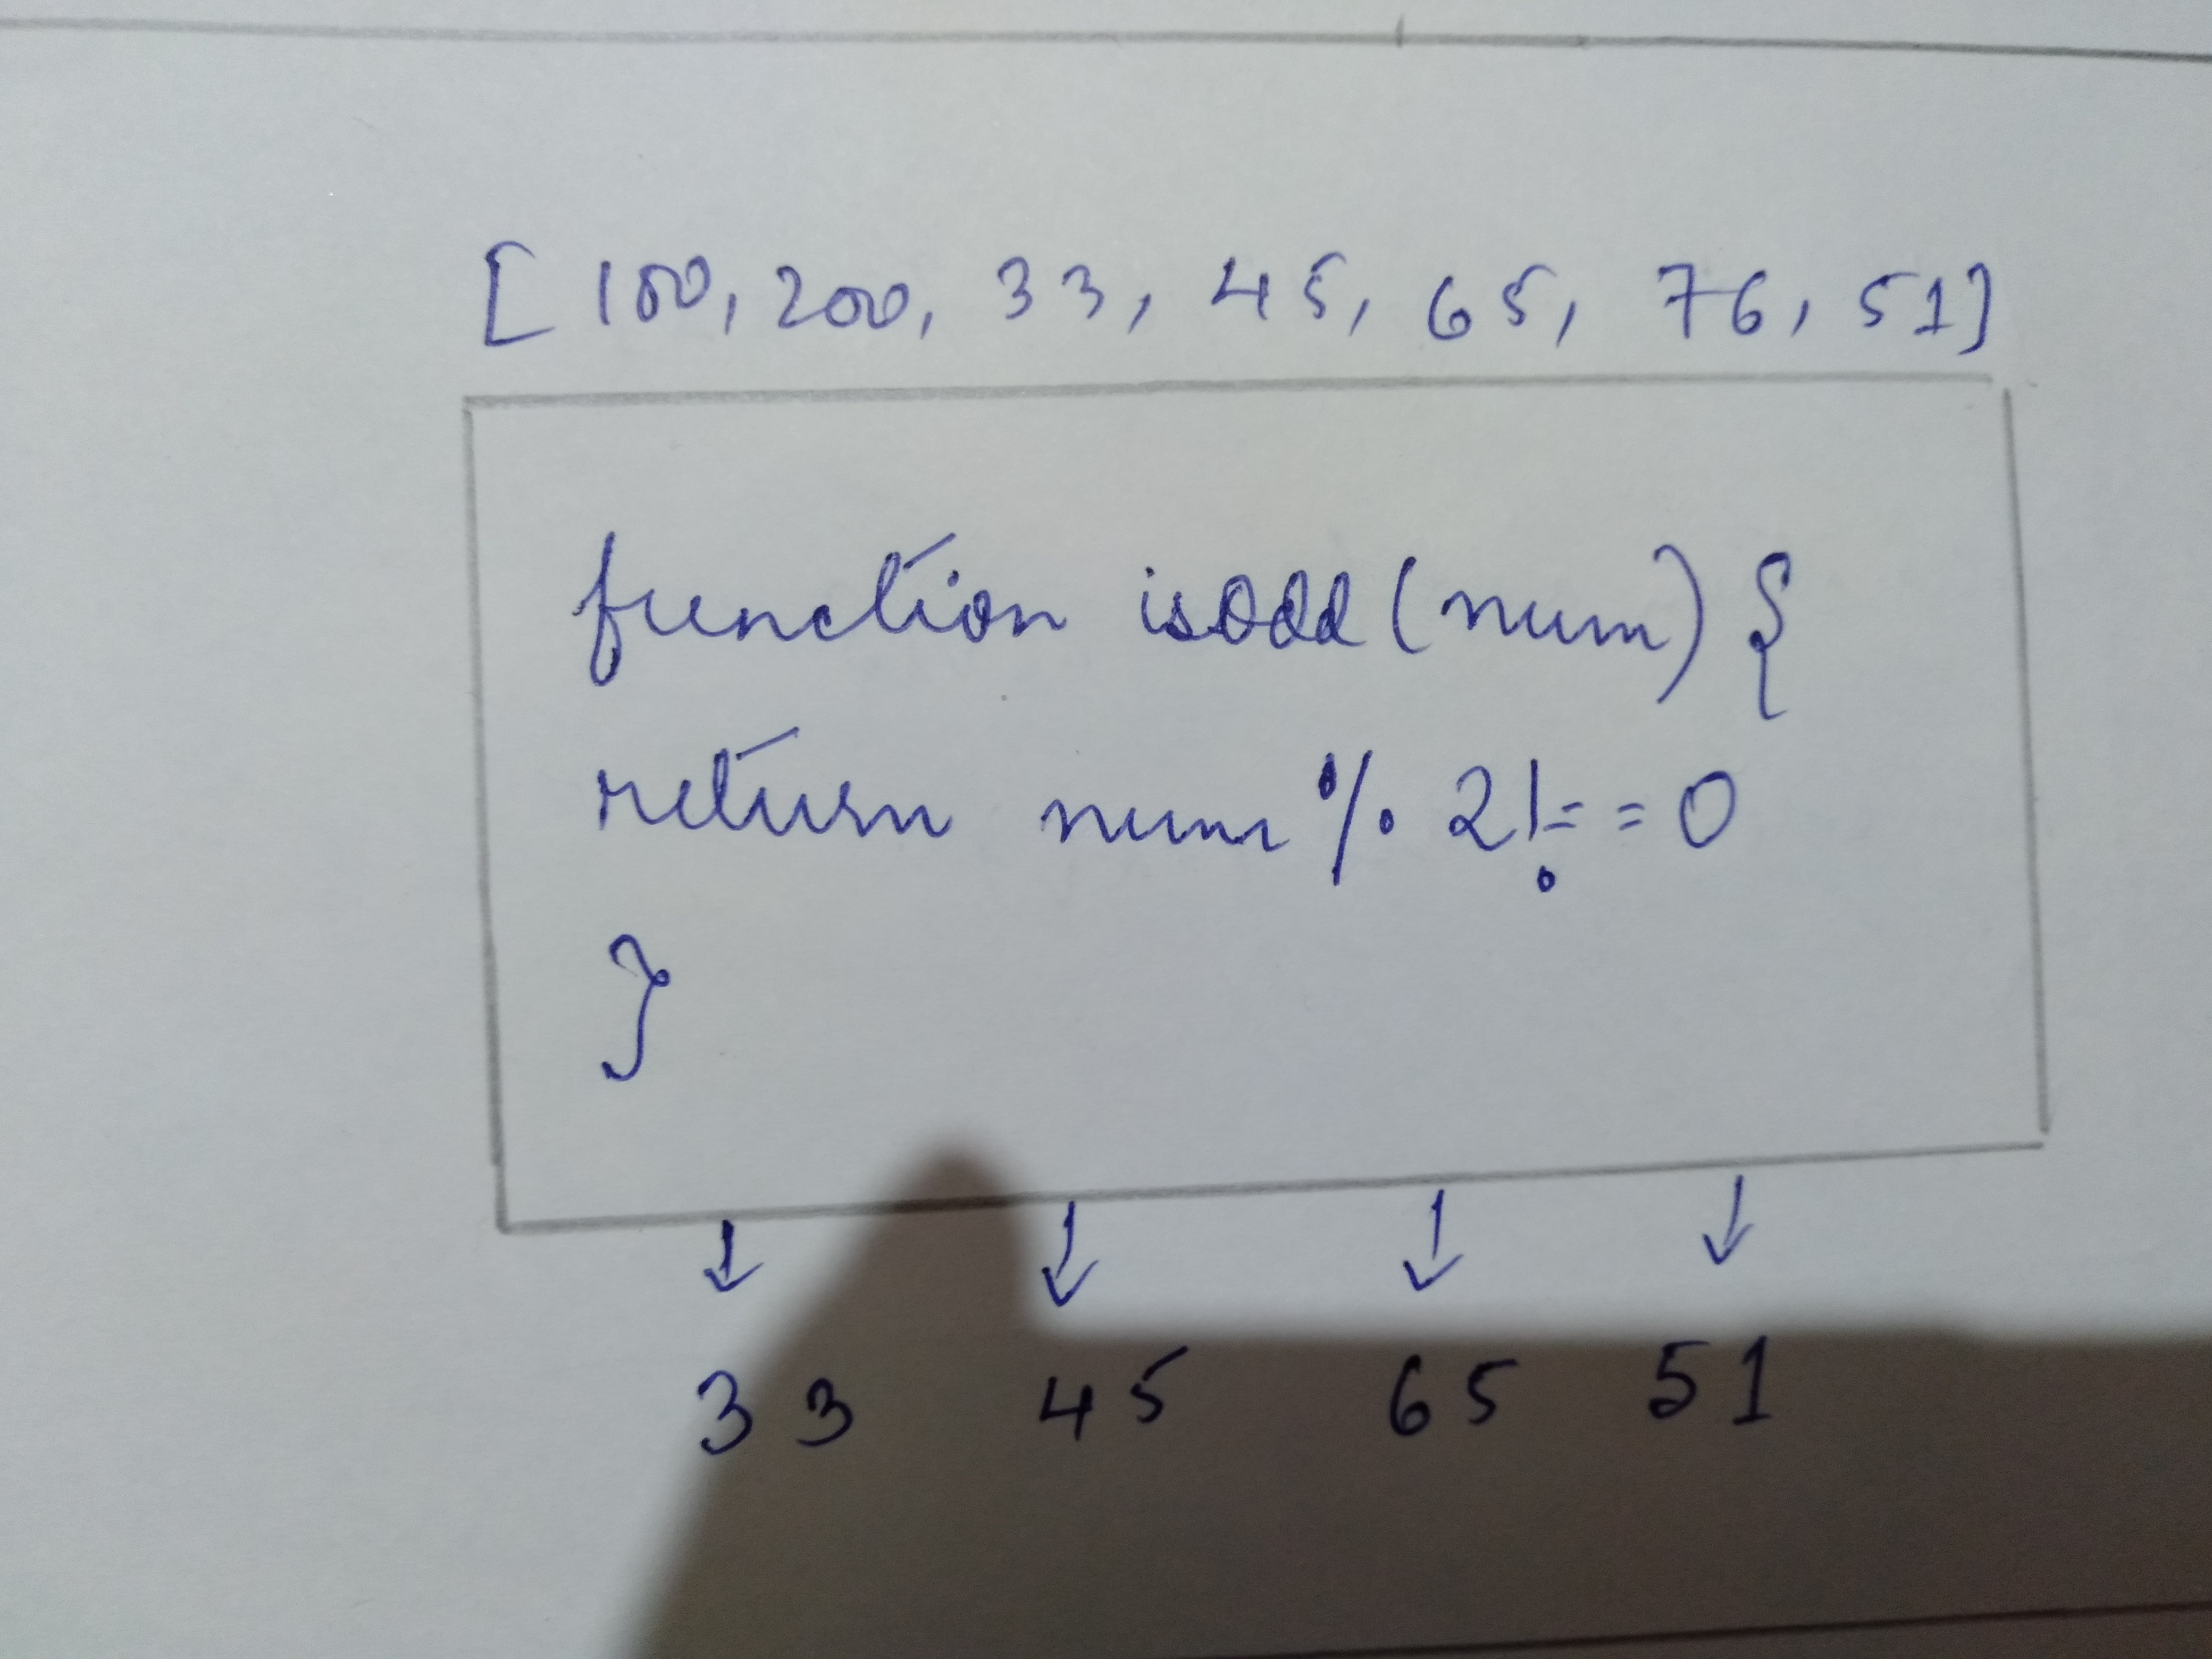 [ 100, 200, 33, 45, 65, 76, 51]
function isOdd (num) {
return num % 2 !== 0
}
33 45 65 51